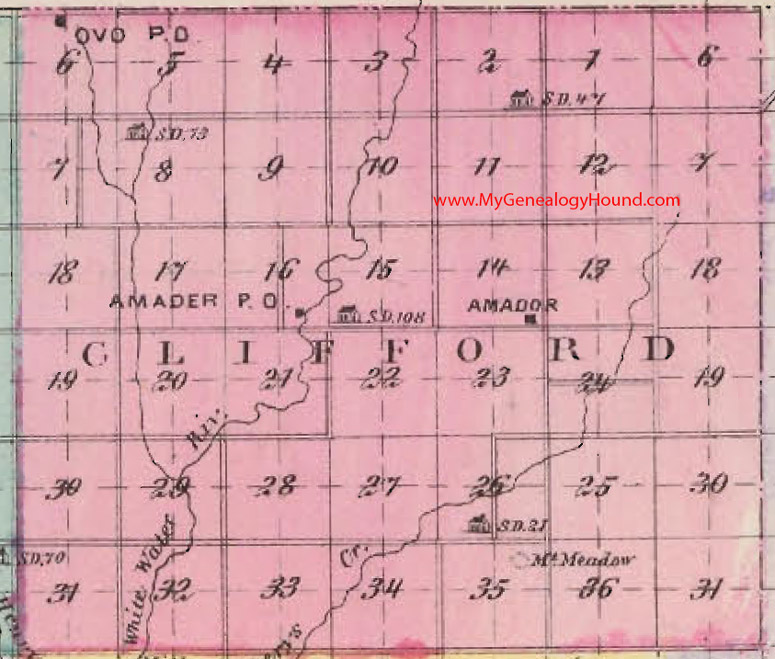 OVO P.O.
6 5 4 3 2 1 6
S.D. 47
S.D. 73
7 8 9 10 11 12 7
www.MyGenealogyHound.com
18 17 16 15 14 13 18
AMADER P.O. AMADOR
S.D. 108
CLIFFORD
19 20 21 22 23 24 19
Riv.
30 29 28 27 26 25 30
S.D. 21
White Water
Cr.
S.D. 70
Mt. Meadow
31 32 33 34 35 36 31